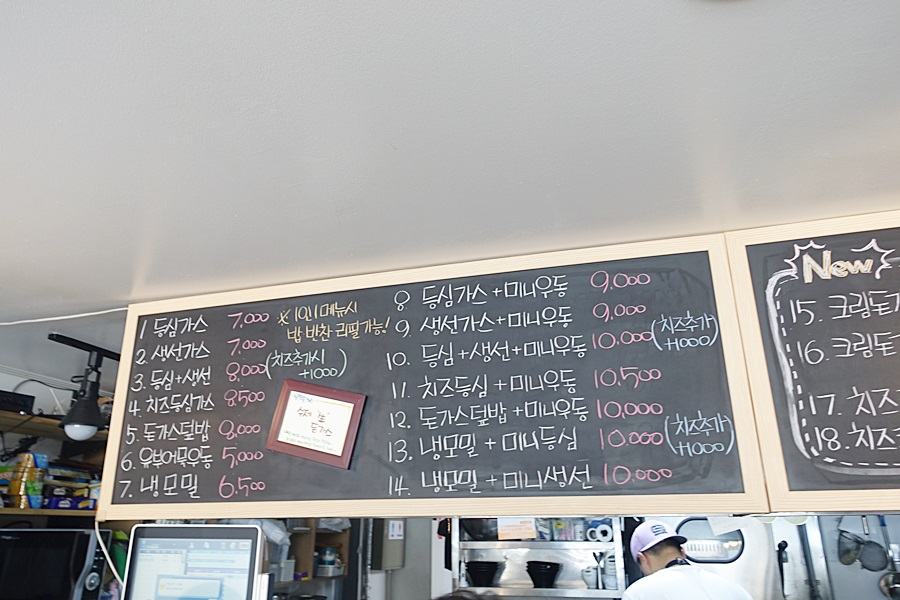 1 등심가스 7,000
2 생선가스 7,000
3. 등심+생선 8,000 (치즈추가시 +1000)
4. 치즈등심가스 8,500
5. 돈가스덮밥 8,000
6. 유부어묵우동 5,000
7. 냉모밀 6,500
※ 1인1메뉴시
밥 반찬 리필가능!
수제 "참"
돈가스
8 등심가스+미니우동 9,000
9. 생선가스+미니우동 9,000
10. 등심+생선+미니우동 10,000 (치즈추가 +1000)
11. 치즈등심+미니우동 10,500
12. 돈가스덮밥+미니우동 10,000
13. 냉모밀+미니등심 10,000 (치즈추가 +1000)
14. 냉모밀+미니생선 10,000
New
15. 크림돈가
16. 크림돈
17. 치즈
18. 치즈